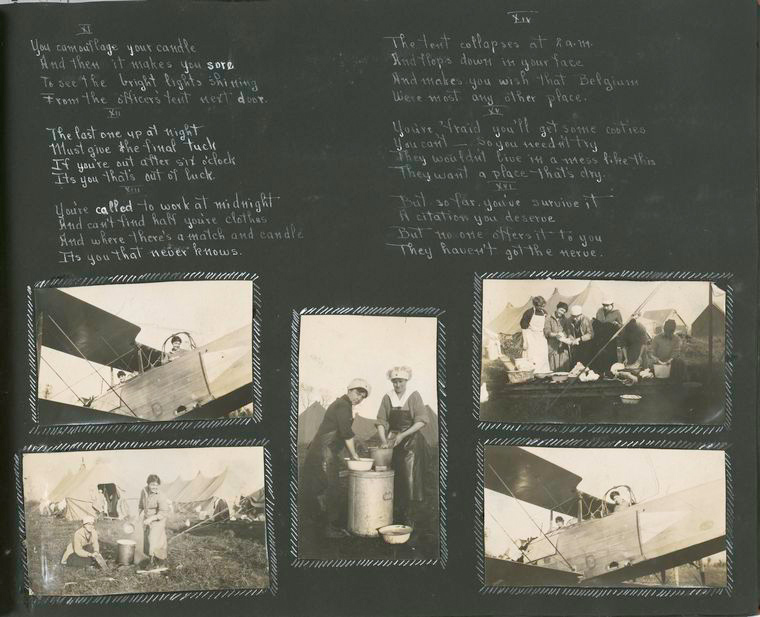 XI
You camouflage your candle
And then it makes you sore
To see the bright lights shining
From the officer's tent next door.
XII
The last one up at night
Must give the final tuck
If you're out after six o'clock
Its you that's out of luck.
XIII
You're called to work at midnight
And can't find half you're clothes
And where there's a match and candle
Its you that never knows.
XIV
The tent collapses at 2 a.m.
And flops down in your face
And makes you wish that Belgium
Were most any other place.
XV
You're 'fraid you'll get some cooties
You can't — so you needn't try
They wouldn't live in a mess like this
They want a place that's dry.
XVI
But so far you've survived it
A citation you deserve
But no one offers it to you
They haven't got the nerve.